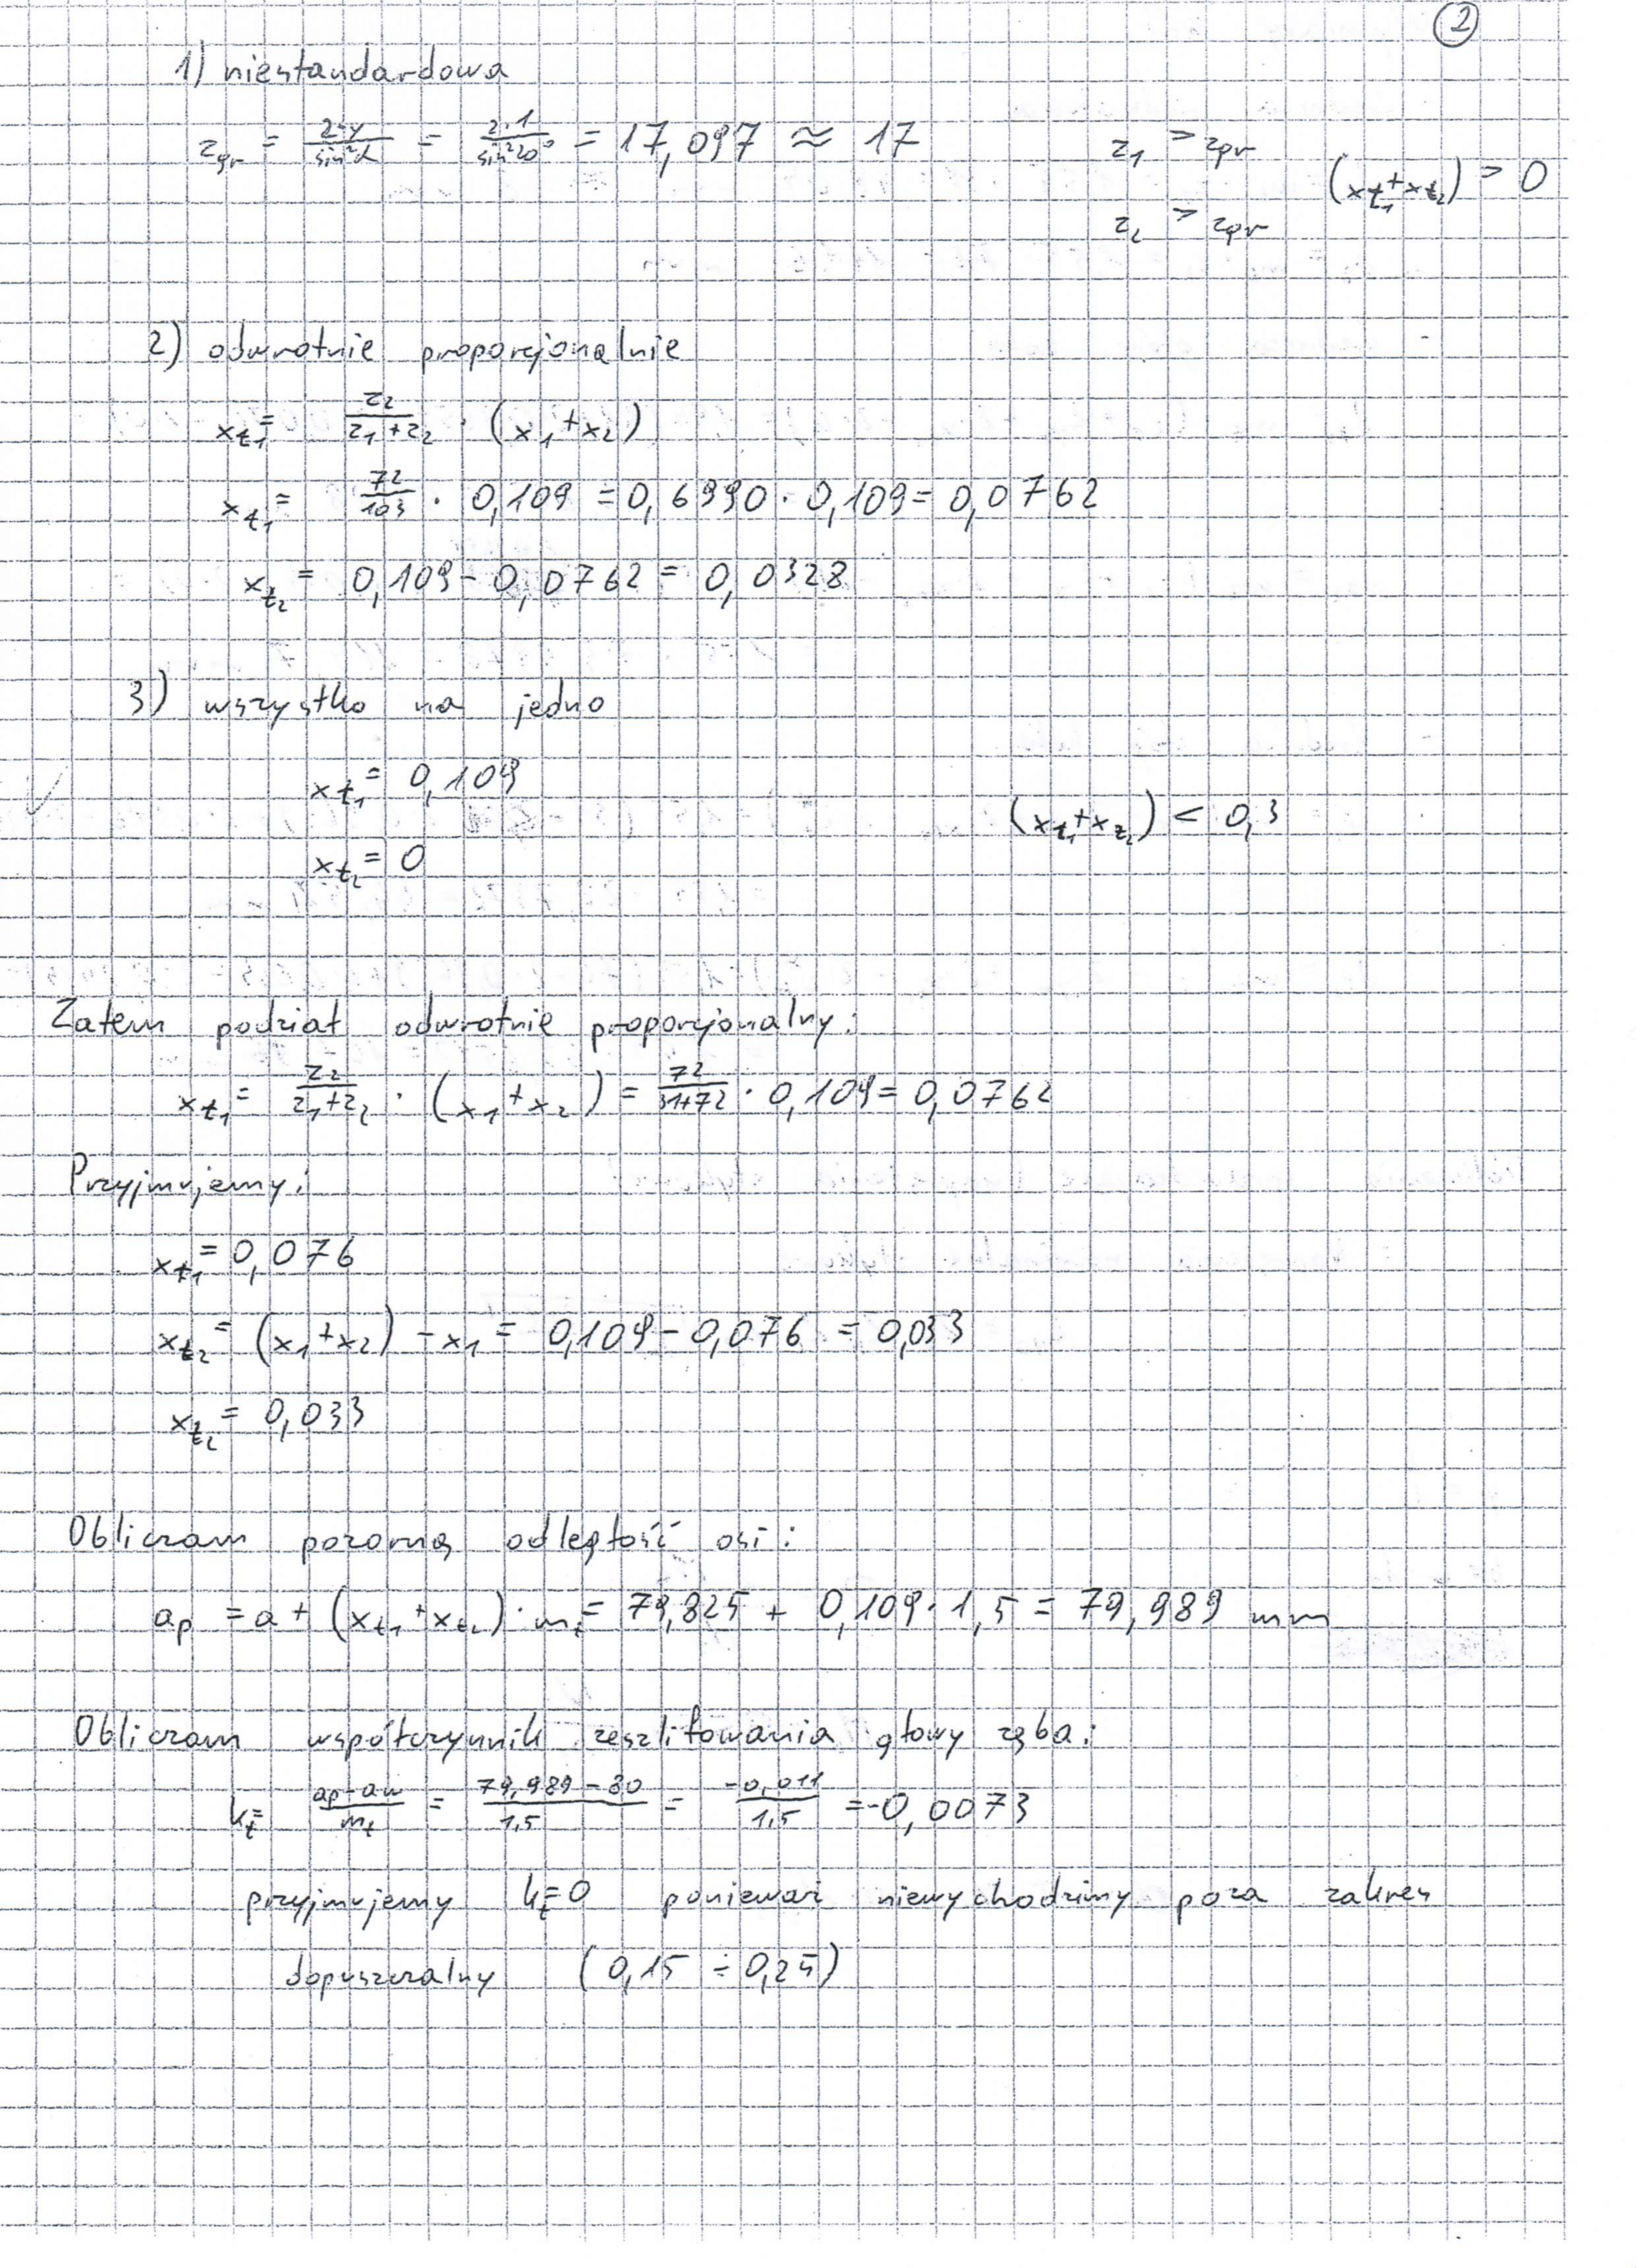 2
1) niestandardowa
z_gr = 2·y/sin²α = 2·1/sin²20° = 17,097 ≈ 17
z_1 > z_gr
(x_t1 + x_t2) > 0
z_2 > z_gr
2) odwrotnie proporcjonalnie
x_t1 = z_2/(z_1+z_2) · (x_1+x_2)
x_t1 = 72/103 · 0,109 = 0,6990 · 0,109 = 0,0762
x_t2 = 0,109 - 0,0762 = 0,0328
3) wszystko na jedno
x_t1 = 0,109
(x_t1 + x_t2) < 0,3
x_t2 = 0
Zatem podział odwrotnie proporcjonalny:
x_t1 = z_2/(z_1+z_2) · (x_1+x_2) = 72/(31+72) · 0,109 = 0,0762
Przyjmujemy:
x_t1 = 0,076
x_t2 = (x_1+x_2) - x_1 = 0,109 - 0,076 = 0,033
x_t2 = 0,033
Obliczam pozorną odległość osi:
a_p = a + (x_t1 + x_t2) · m_t = 79,825 + 0,109 · 1,5 = 79,989 mm
Obliczam współczynnik zeszlifowania głowy zęba:
k_t = (a_p - a_w)/m_t = (79,989 - 80)/1,5 = -0,011/1,5 = -0,0073
przyjmujemy k_t = 0 ponieważ niewychodzimy poza zakres
dopuszczalny (0,15 ÷ 0,25)